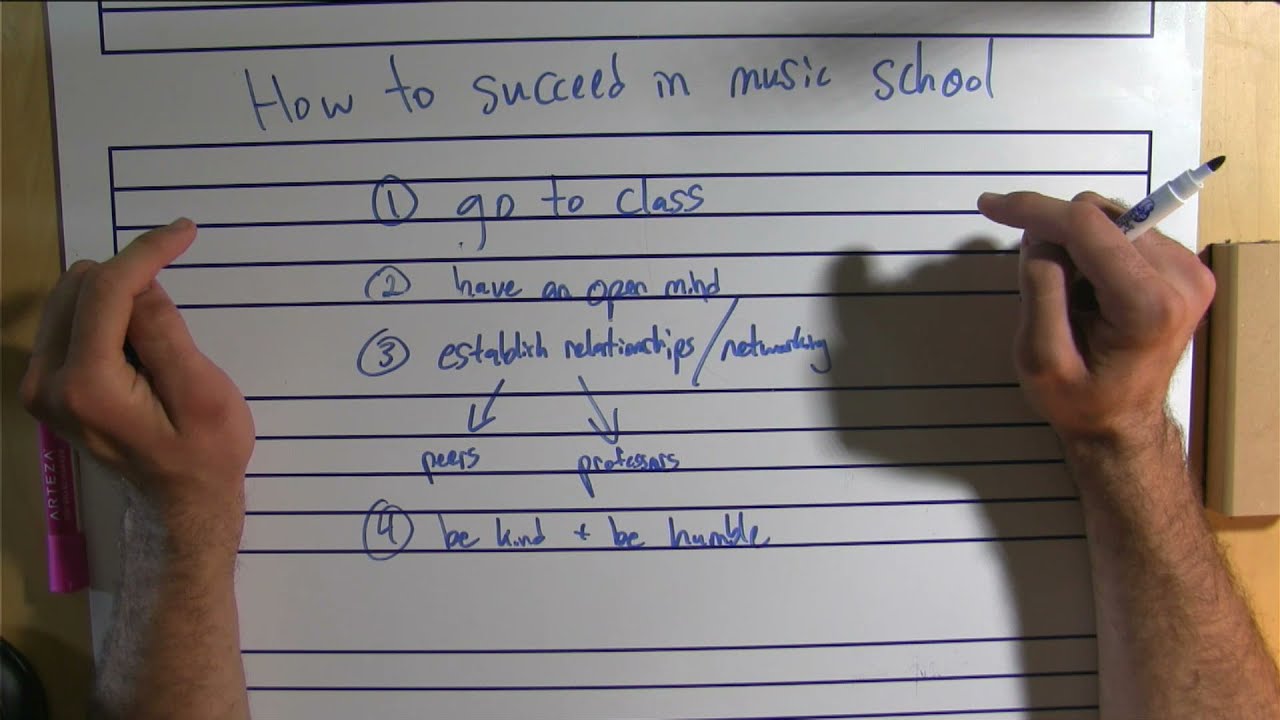 How to succeed in music school
① go to class
② have an open mind
③ establish relationships / networking
peers professors
④ be kind + be humble
ARTEZA